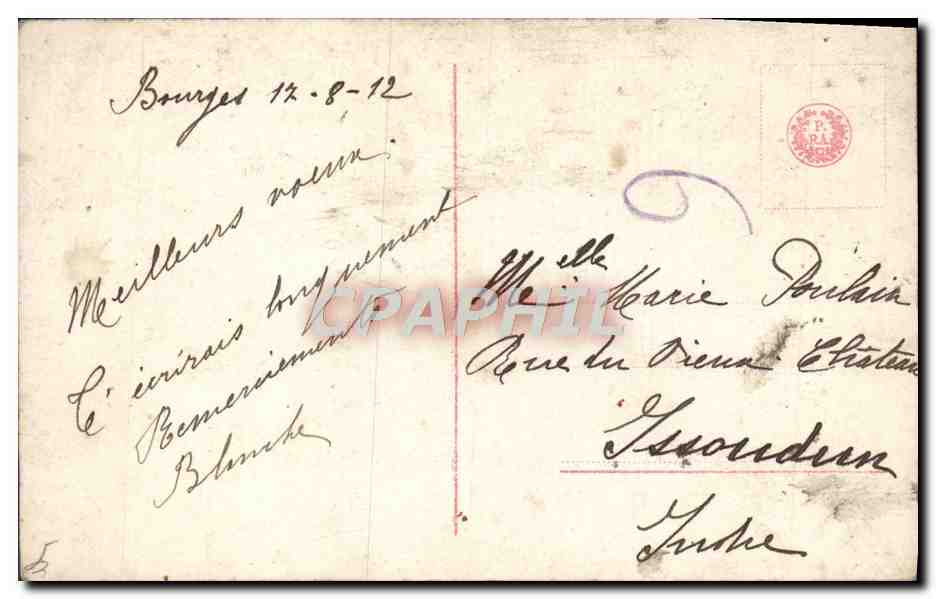 Bourges 17-8-12
Meilleurs voeux.
T'écrirais longuement
Remerciements
Blanche
Melle Marie Poulain
Rue du Vieux Château
Issoudun
Indre
CPAPHIL
P.
RA.